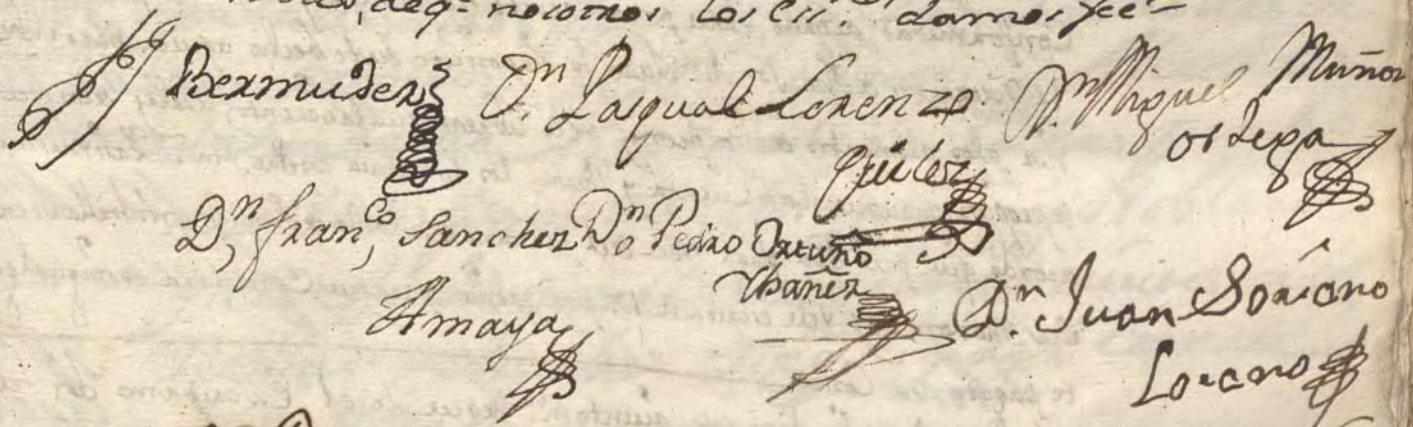 deq.e nosotros los ess.s damos fee=
Bermudez Dn. Pasqual Lorenzo Dn. Miguel Muñoz
Quilez ortega
Dn, fran,co Sanchez Dn Pedro Ortuño
Ybañez
Amaya Dn. Juan Soriano
Lozano